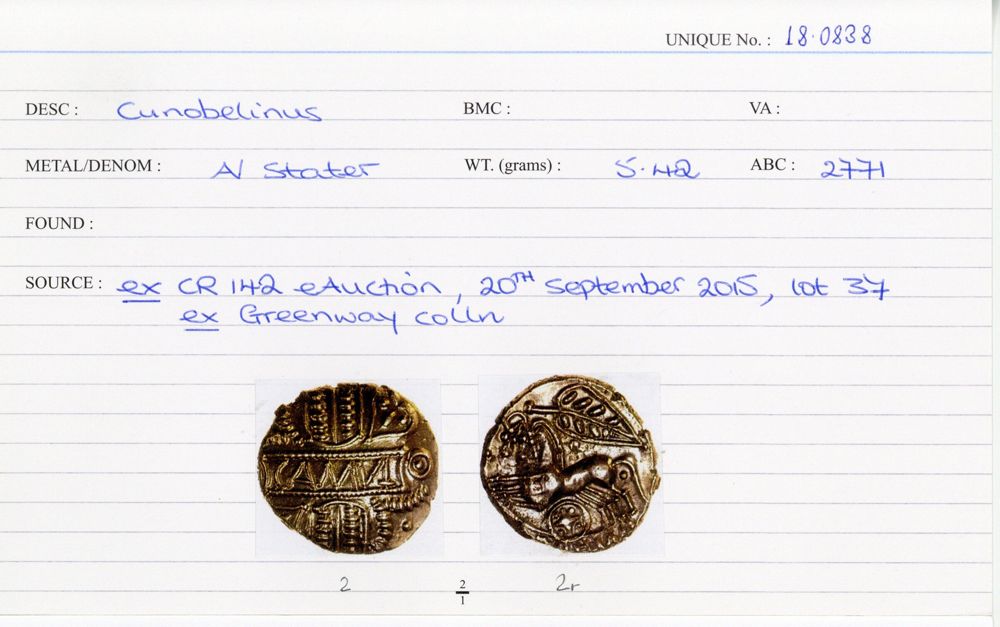 UNIQUE No. : 18.0838
DESC : Cunobelinus BMC : VA :
METAL/DENOM : A/ Stater WT. (grams) : 5.42 ABC : 2771
FOUND :
SOURCE : ex CR 142 eAuction, 20TH September 2015, lot 37
ex Greenway colln
CAMV
2 2/1 2r